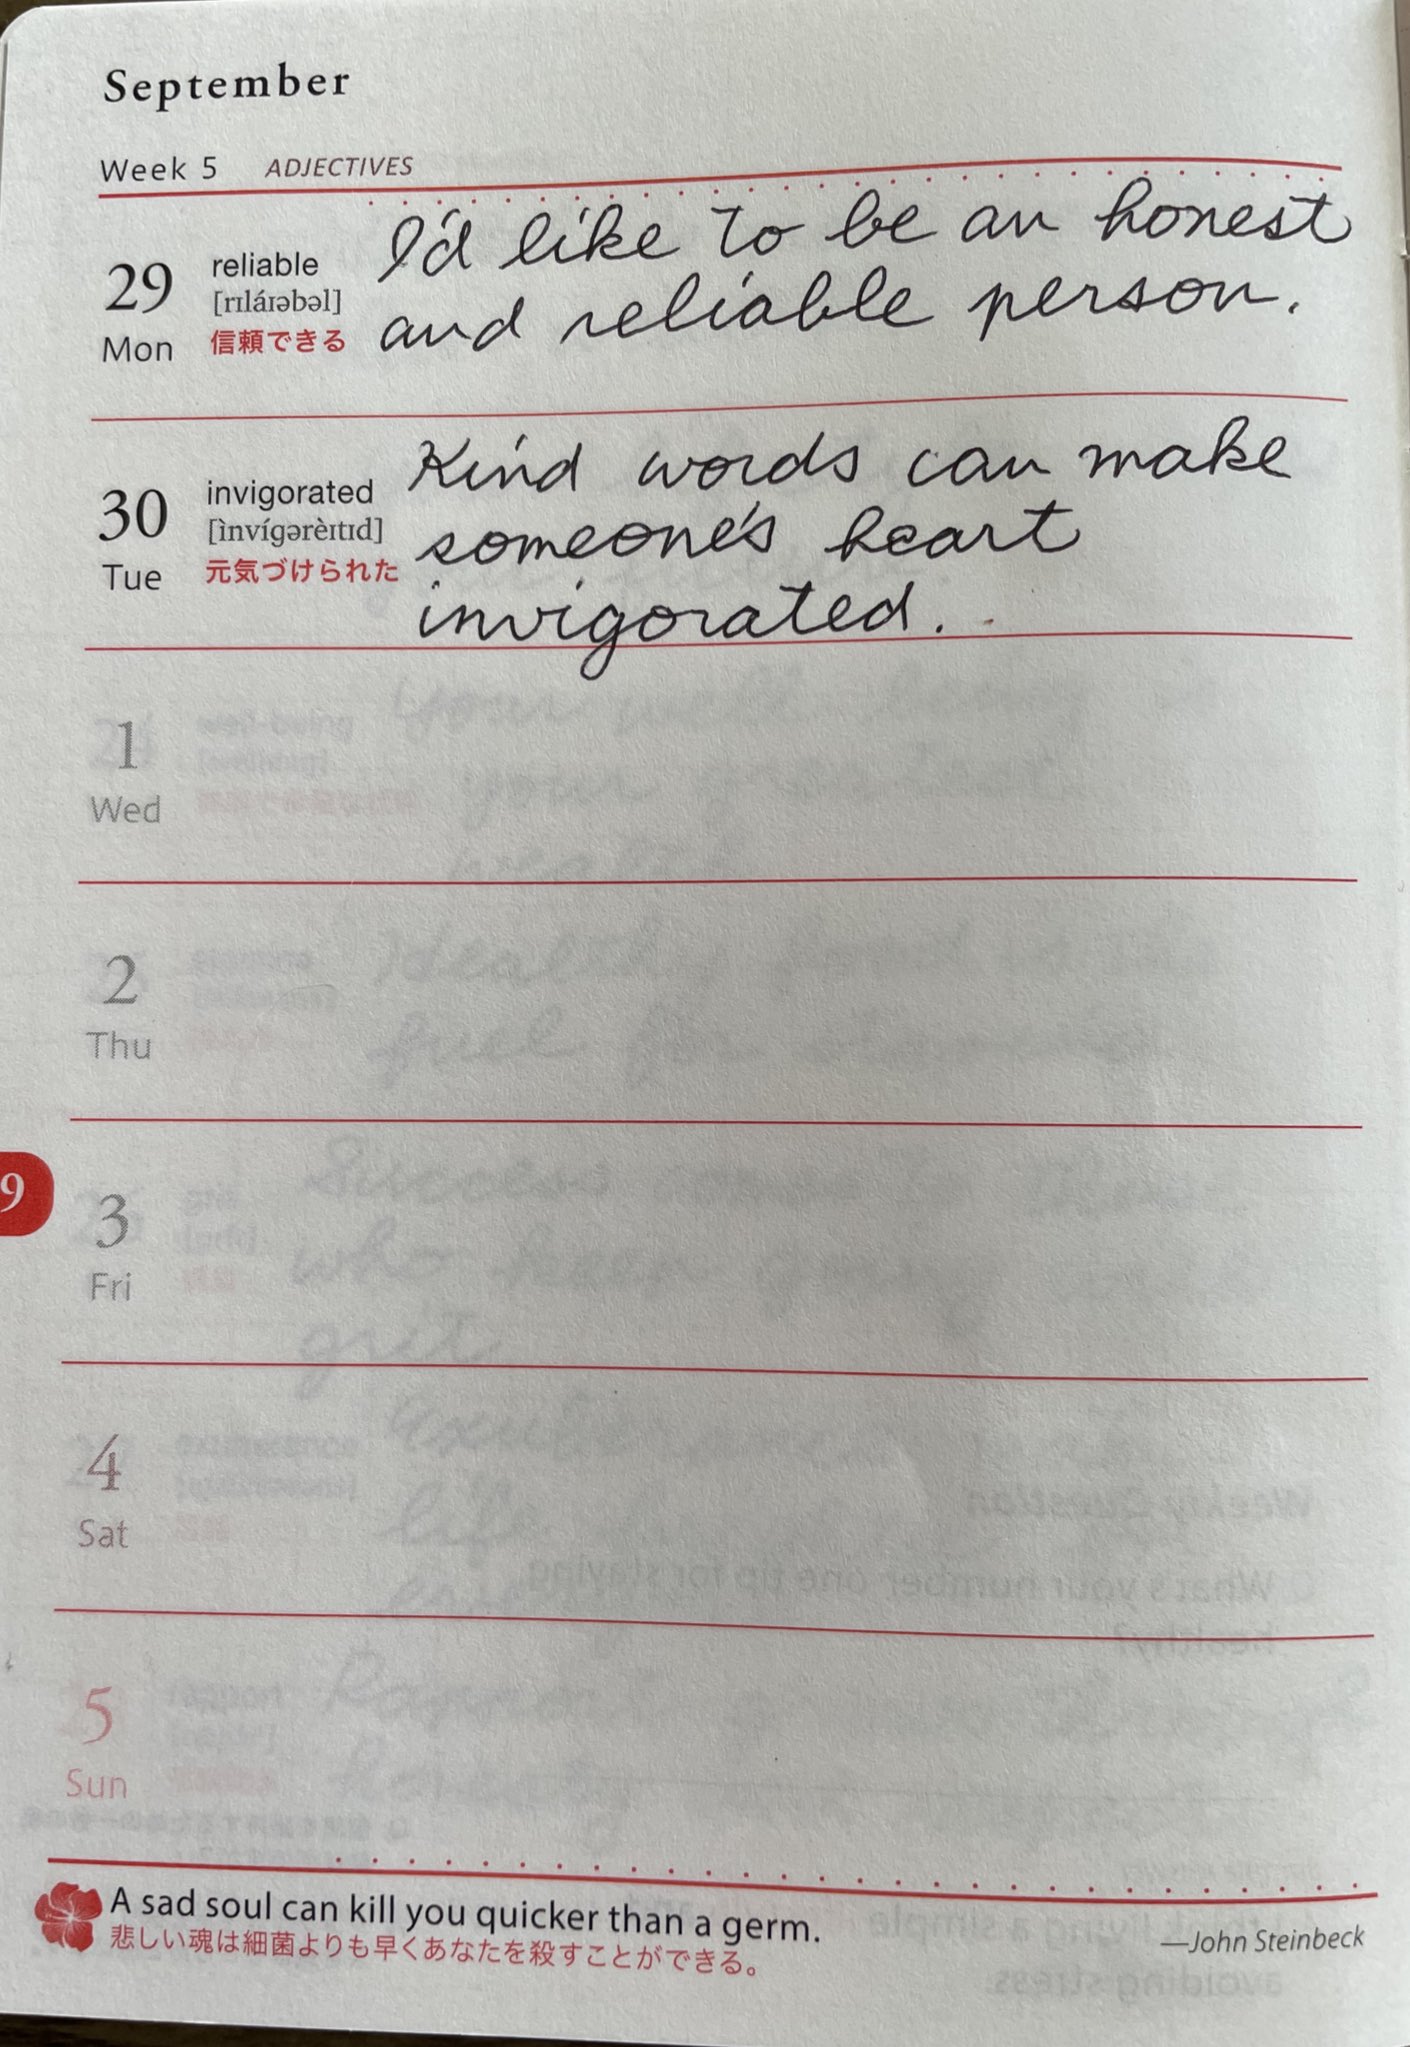 September
Week 5 ADJECTIVES
29
Mon
reliable
[rɪláɪəbəl]
信頼できる
I'd like to be an honest
and reliable person.
30
Tue
invigorated
[ìnvígərèɪtɪd]
元気づけられた
Kind words can make
someone's heart
invigorated.
1
Wed
2
Thu
9
3
Fri
4
Sat
5
Sun
A sad soul can kill you quicker than a germ.
悲しい魂は細菌よりも早くあなたを殺すことができる。
—John Steinbeck